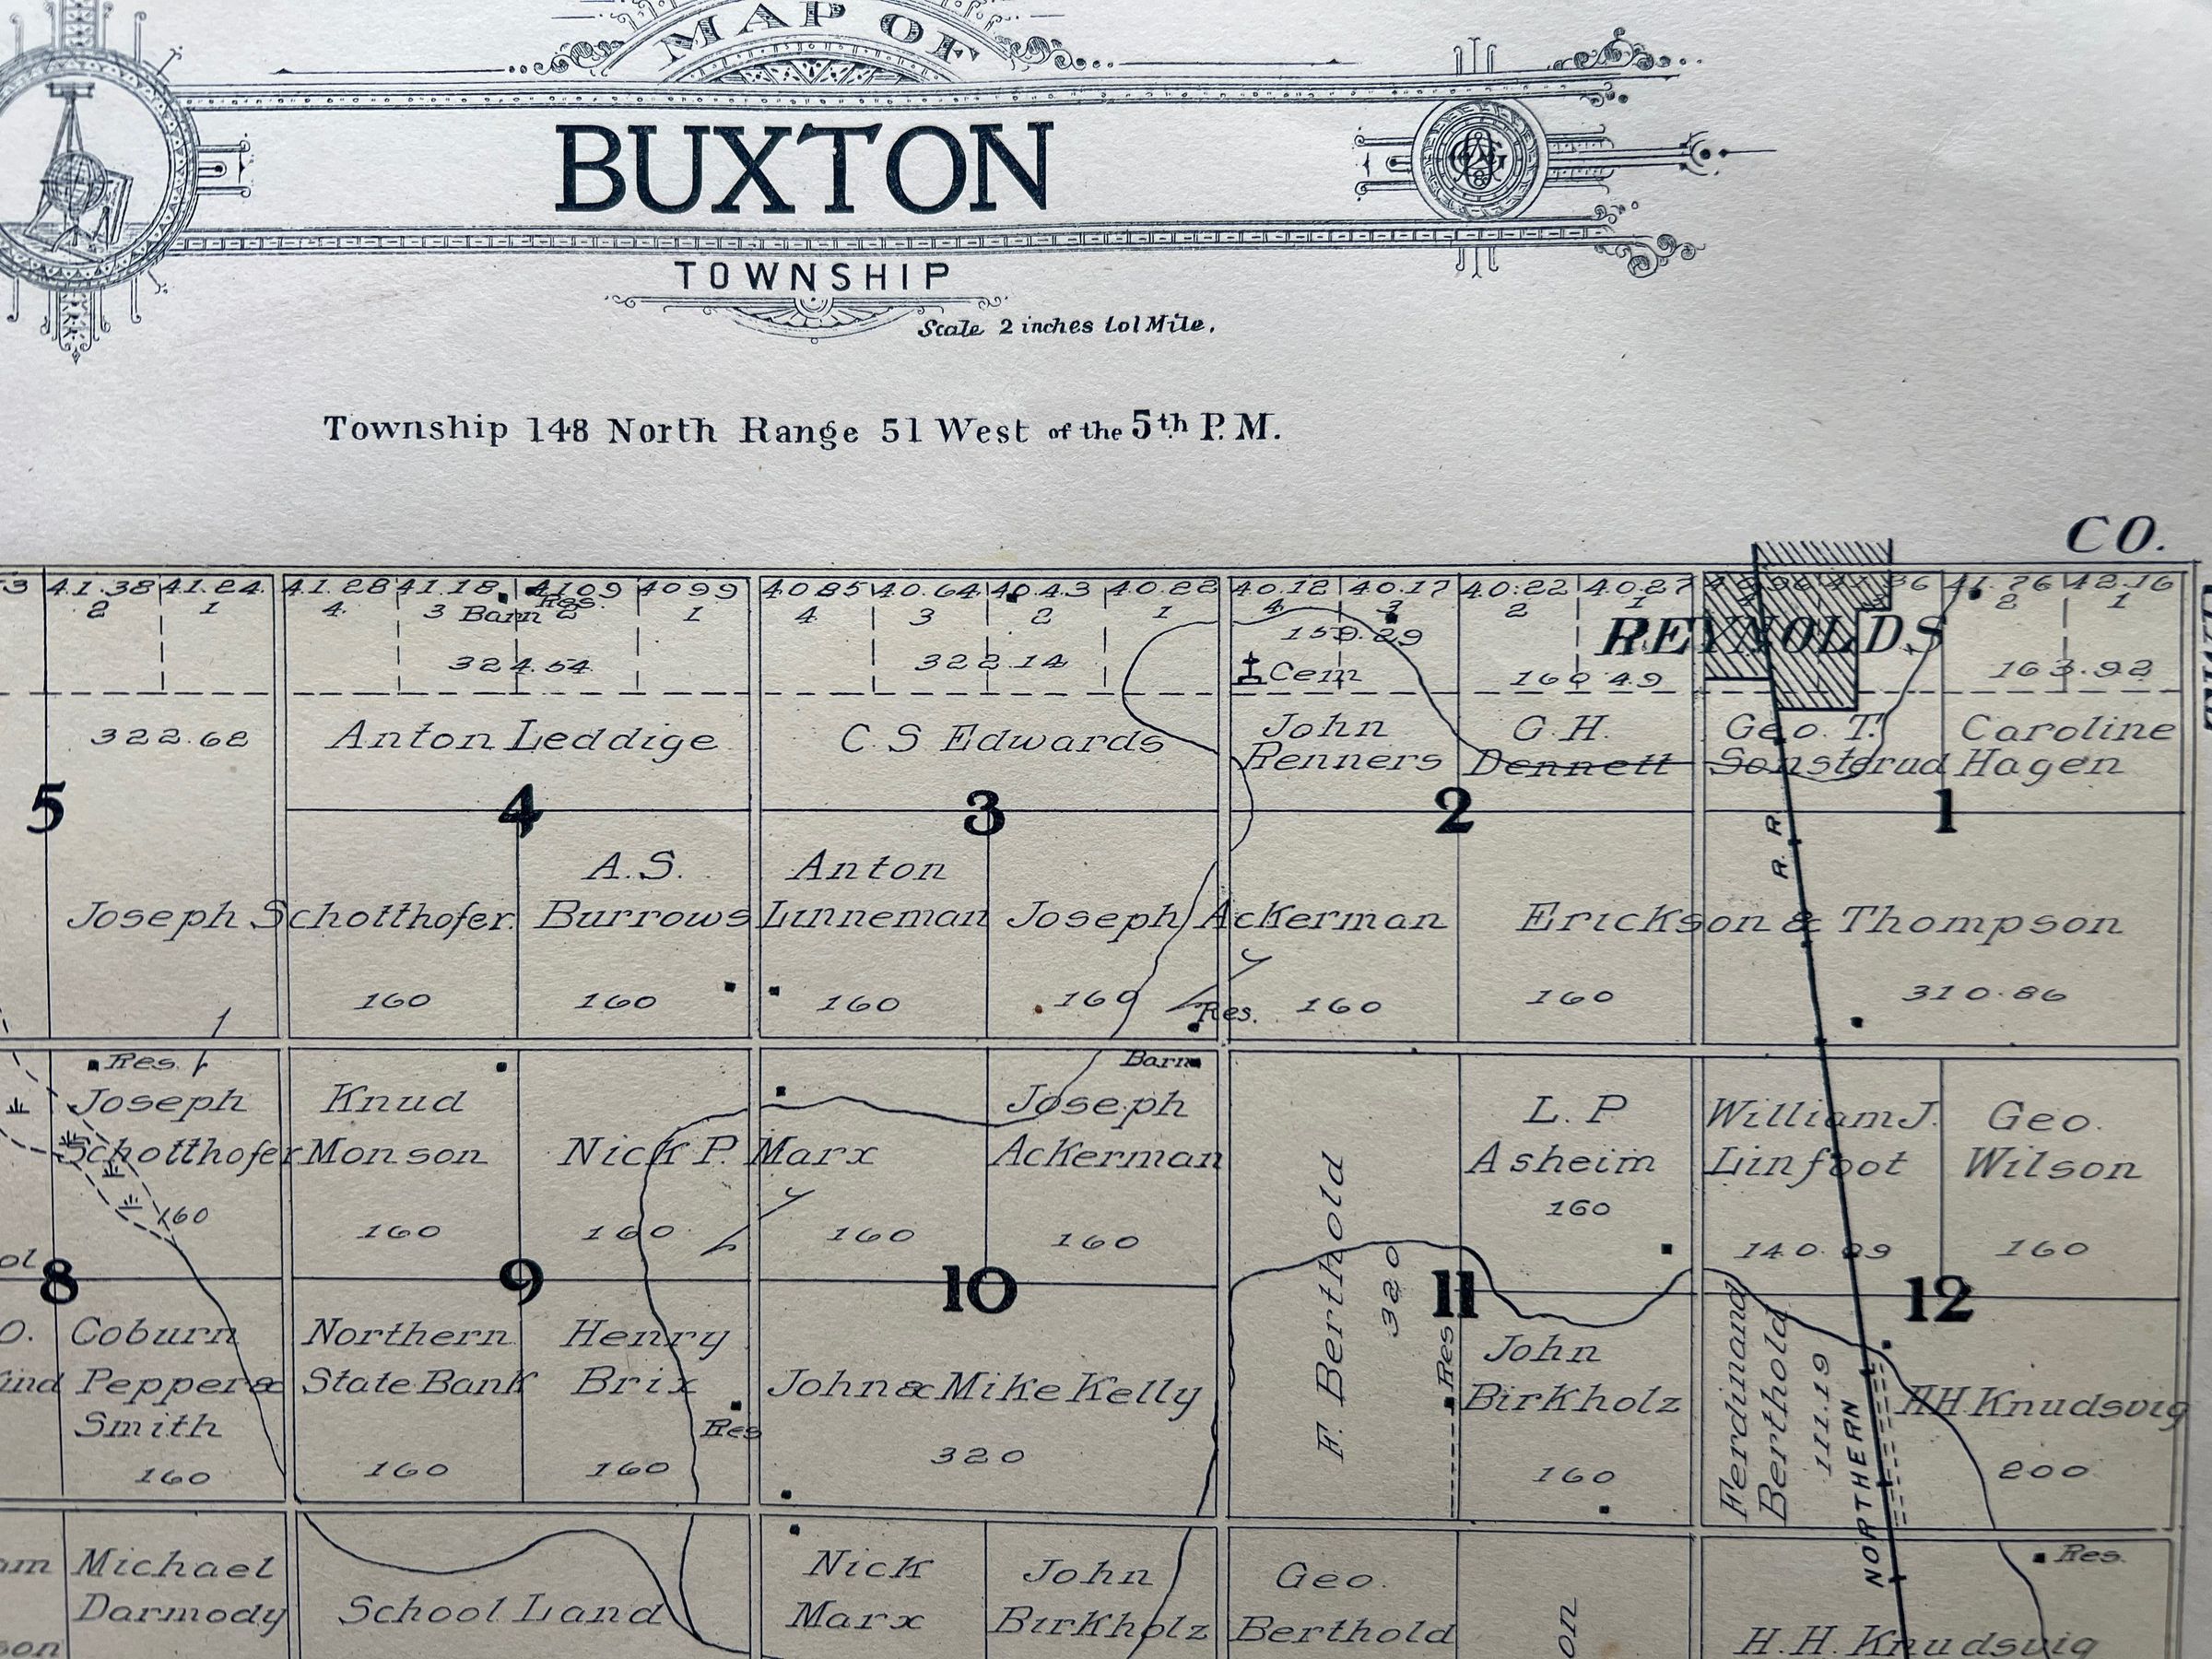 MAP OF
BUXTON
TOWNSHIP
Scale 2 inches to 1 Mile.
Township 148 North Range 51 West of the 5th P.M.
CO.
41.38 41.24 41.28 41.18 41.09 40.99 40.85 40.64 40.43 40.22 40.12 40.17 40.22 40.27 41.76 42.16
2 1 4 3 2 1 4 3 2 1 4 3 2 1 2 1
Barn Res.
REYNOLDS
324.54 322.14 159.29 160.49 163.92
Cem
322.62
Anton Leddige
C S Edwards
John
Renners
G.H.
Dennett
Geo. T.
Sonsterud
Caroline
Hagen
5 4 3 2 1
R. R.
Joseph Schotthofer.
A.S.
Burrows
Anton
Linneman
Joseph Ackerman
Erickson & Thompson
160 160 160 160 160 160 310.86
Res.
Res.
Joseph
Schotthofer
160
Knud
Monson
160
Nick P. Marx
160 160
Barn
Joseph
Ackerman
160
F. Berthold
320
L. P
Asheim
160
William J.
Linfoot
140.09
Geo.
Wilson
160
8 9 10 11 12
Coburn
Pepper &
Smith
160
Northern
State Bank
160
Henry
Brix
160
Res
John & Mike Kelly
320
Res
John
Birkholz
160
Ferdinand
Berthold
111.19
NORTHERN
H.H. Knudsvig
200
Michael
Darmody
School Land
Nick
Marx
John
Birkholz
Geo.
Berthold
on
Res.
H. H. Knudsvig